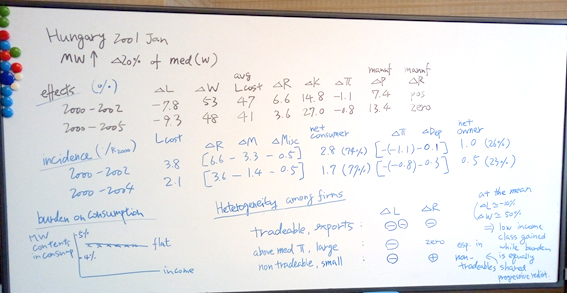 Hungary 2001 Jan
MW ↑ △20% of med(w)
effects (%) △L △W avg Lcost △R △K △π manuf △P manuf △R
2000-2002 -7.8 53 47 6.6 14.8 -1.1 7.4 pos
2000-2005 -9.3 48 41 3.6 27.0 -0.8 13.4 zero
incidence (/R2000) Lcost △R △M △Misc net consumer △π △Dep net owner
2000-2002 3.8 [6.6 - 3.3 - 0.5] 2.8 (74%) [-(-1.1)-0.1] 1.0 (26%)
2000-2004 2.1 [3.6 - 1.4 - 0.5] 1.7 (77%) [-(-0.8)-0.3] 0.5 (23%)
burden on consumption
MW content in consump
5%
4%
flat
income
Heterogeneity among firms
△L △R
tradeable, exports : ⊖⊖ ⊖
above med π, large : ⊖ zero
non tradeable, small : ⊖ ⊕
esp. in non-tradeables
at the mean
(△L ≥ -10%
△W ≥ 50%
⇒ low income
class gained
while burden
is equally
shared
progressive redist.